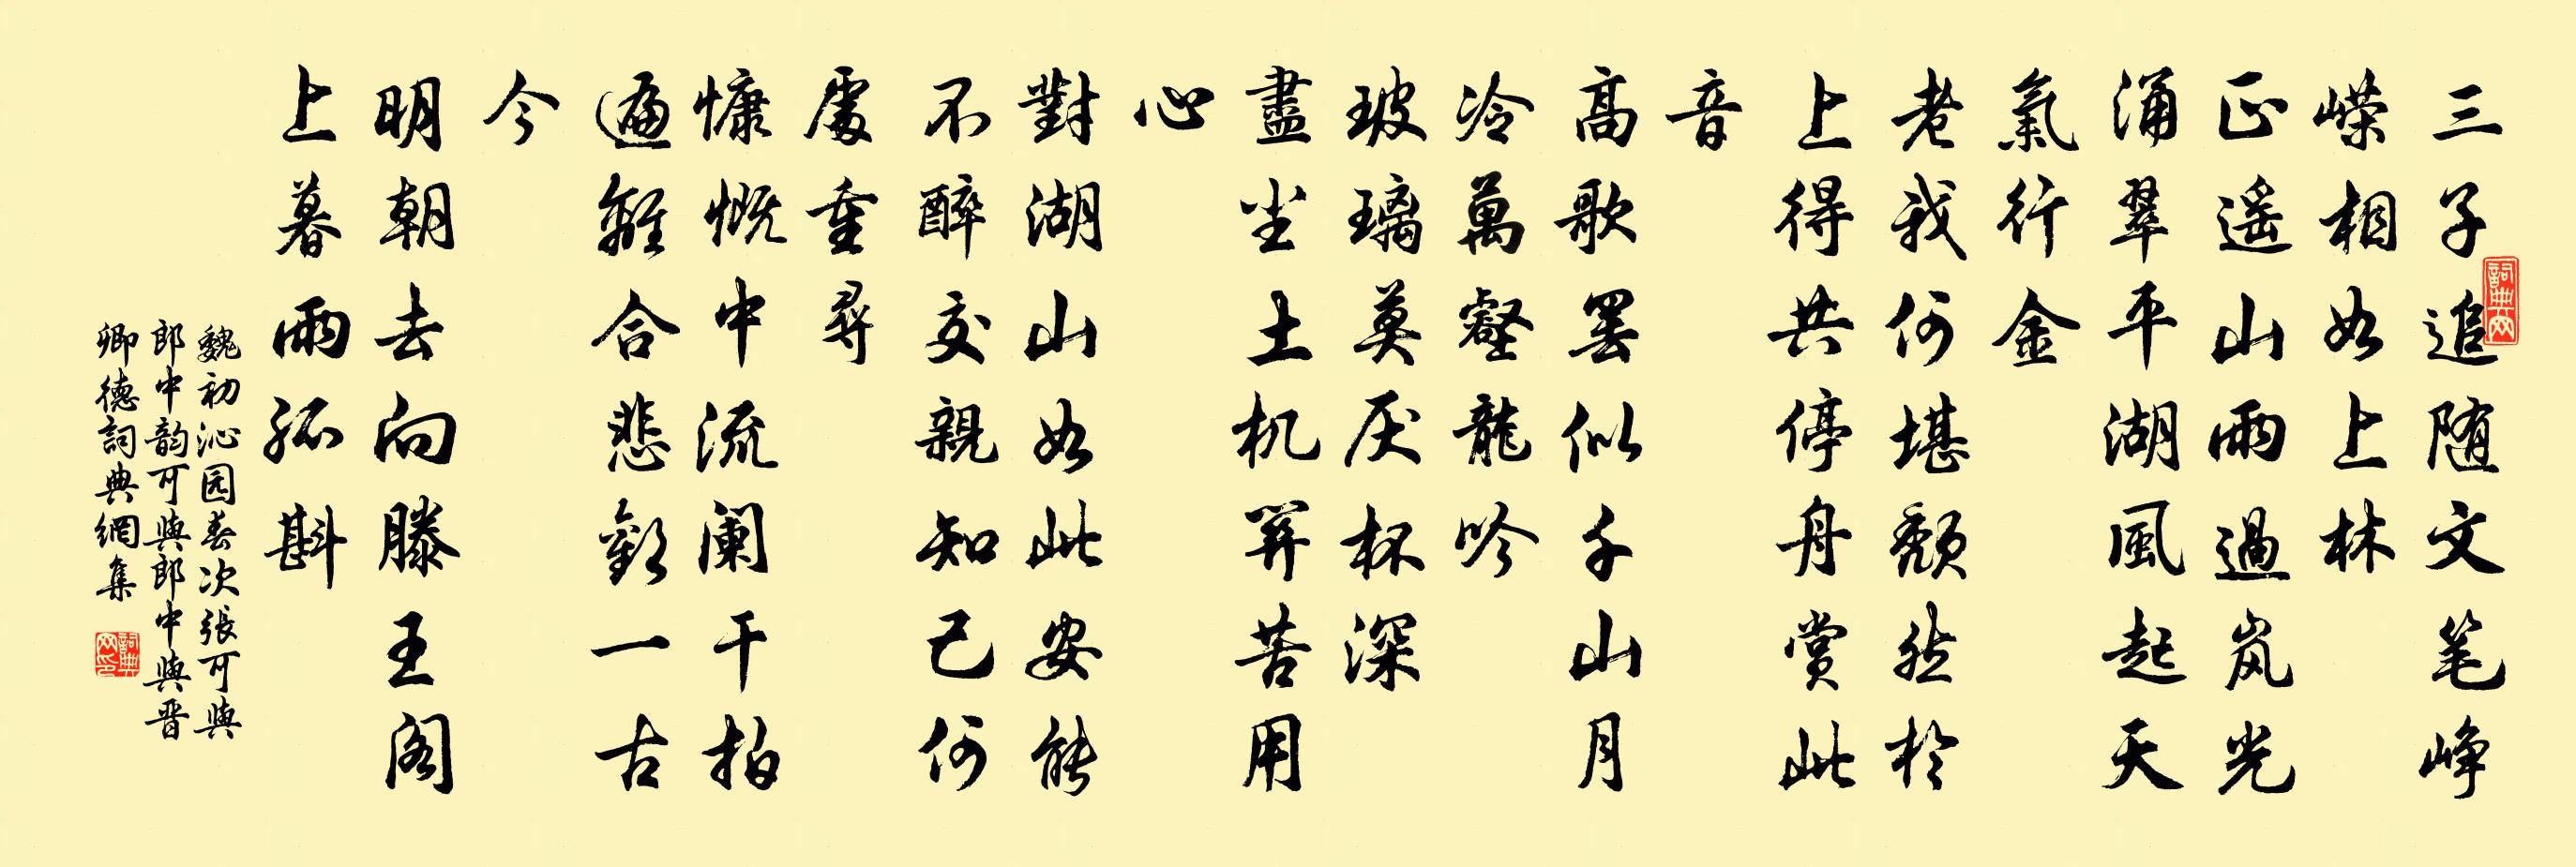 三子追随文笔峥
嵘相如上林
正遥山雨過岚光
涌翠平湖風起天
氣行金
老我何堪頽然於
上得共停舟賞此
音
高歌罢似千山月
冷萬壑龍吟
玻璃莫厌杯深
盡尘土机関苦用
心
對湖山如此安能
不醉交親知己何
處重尋
慷慨中流阑干拍
遍離合悲歡一古
今
明朝去向滕王阁
上暮雨孤斟
魏初沁园春次張可與
郎中韵可與郎中與晋
卿德詞典網集
詞典网
詞典网印